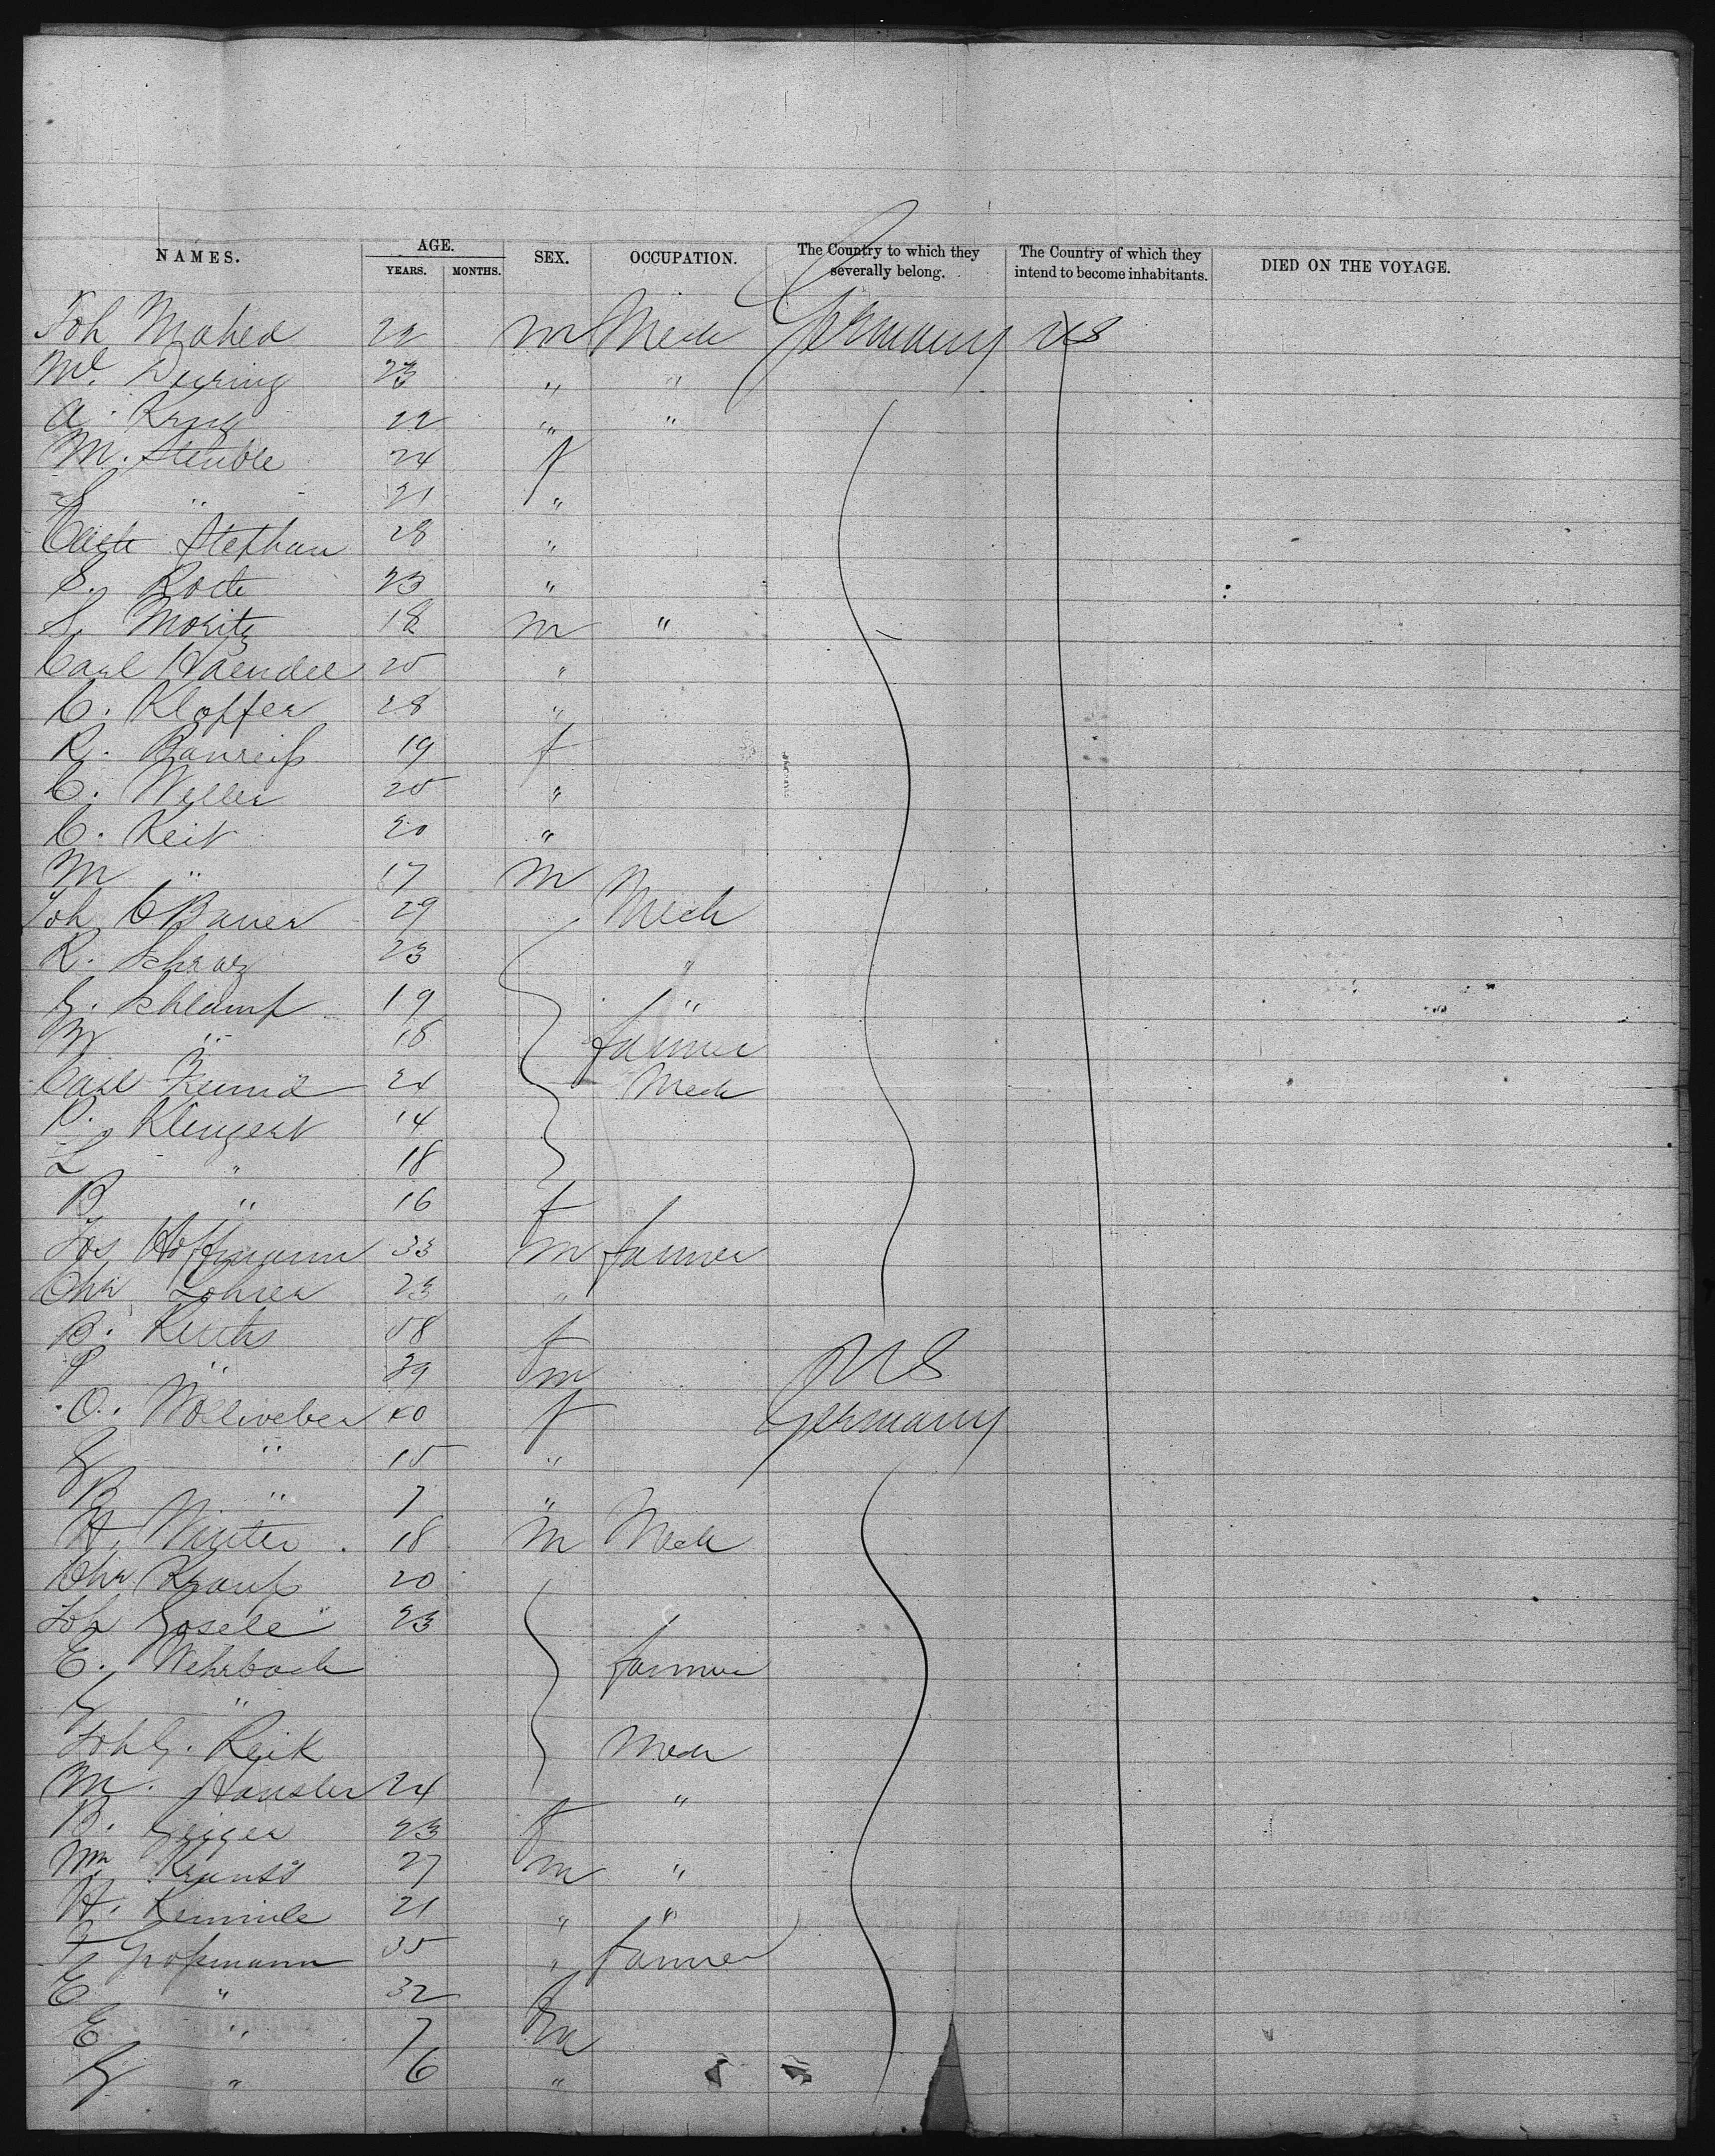 NAMES. AGE. YEARS. MONTHS. SEX. OCCUPATION. The Country to which they severally belong. The Country of which they intend to become inhabitants. DIED ON THE VOYAGE.
Joh 22 m Mech Germany US
23 " "
A. Krug 22 " "
M. Steuble 24 f
S " 21 "
Stephan 28 "
S. Rode 23 "
S. Moritz 18 m "
Carl Haendel 25 "
C. Klopfer 28 "
R. 19 f
C. Weller 25 "
C. Keit 20 "
M " 17 m
Joh C Bauer 29 Mech
R. 23 "
G. Schlamp 19 "
M " 18 farmer
Carl 24 Mech
P. Klingert 14
L " 18
B " 16 f
Jos Hoffmann 33 m farmer
Chr Lohrer 23 "
B. 58 f
P " 39 m US
O. Wollweber 40 f Germany
G " 15 "
B " 7 "
H. Winter 18 m Mech
Chr Krauß 20
Joh Gosele 23
E. Wehrbach farmer
G "
Joh G. Reik Mech
M. Hansler 24 "
B. Geiger 23 f
Wm Krauss 27 m "
H. Kemmle 21 " "
Großmann 35 " farmer
E " 32 f
E " 7 m
G " 6 "